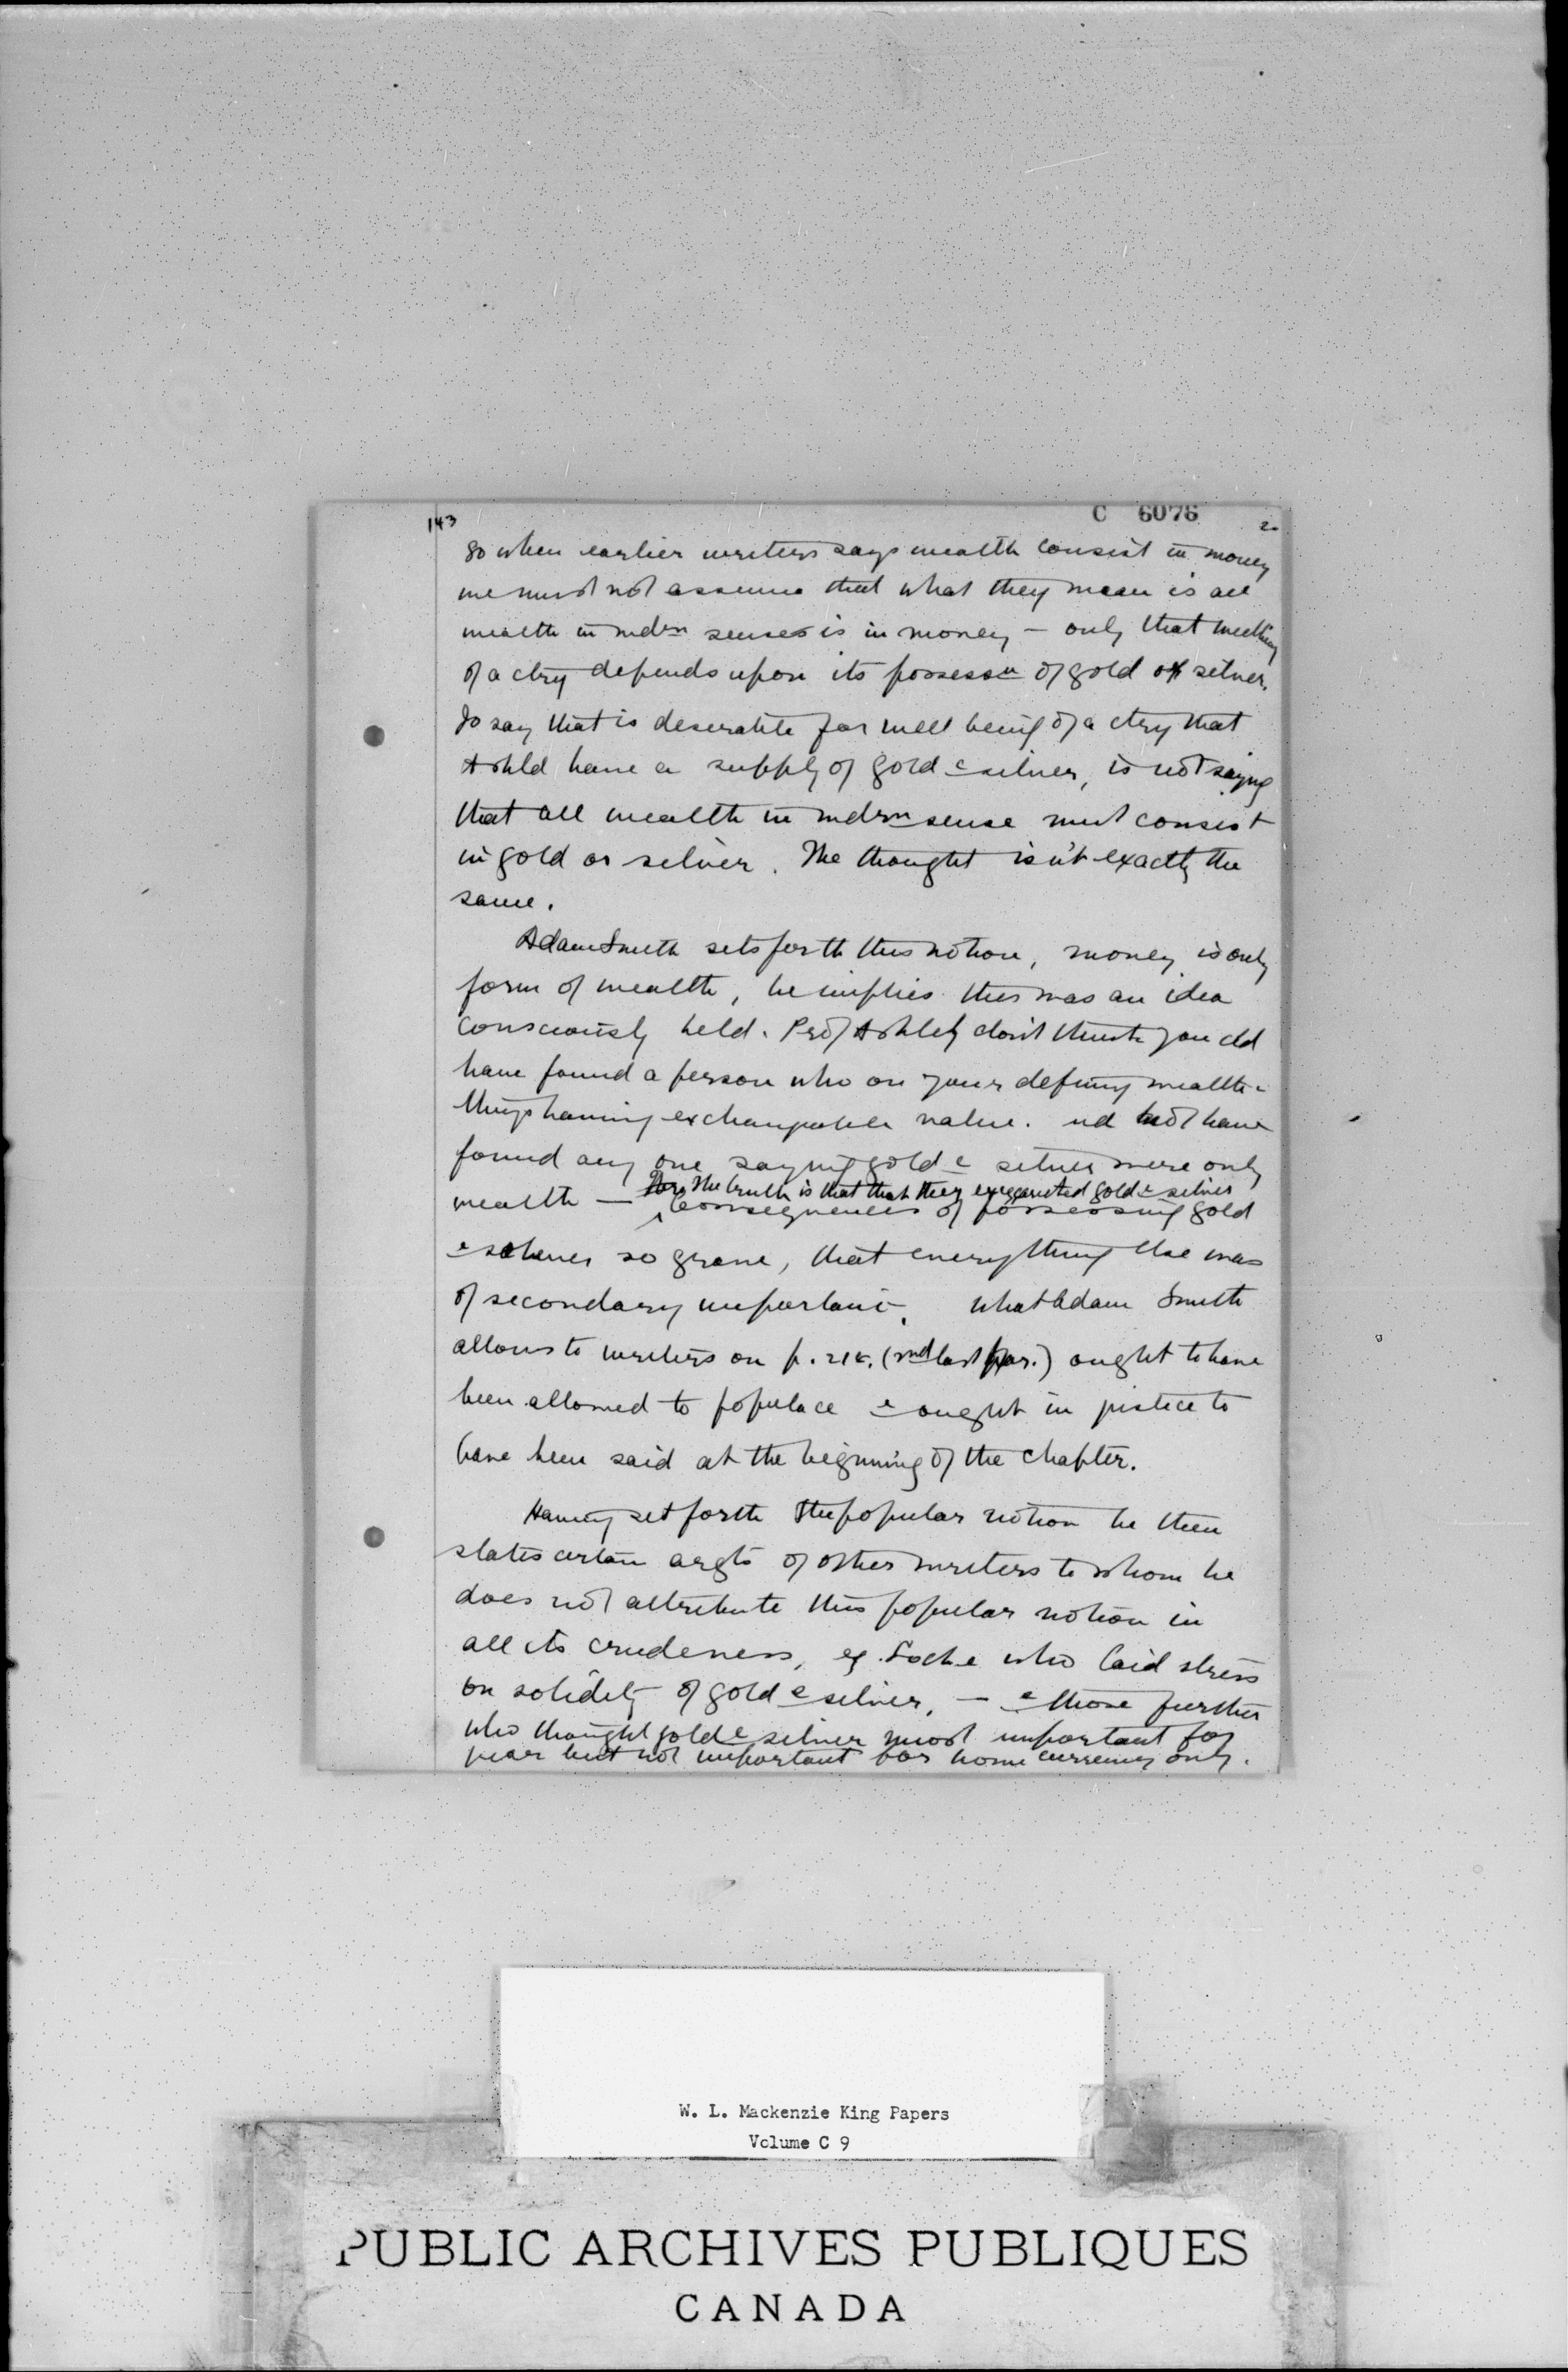 143
C 6076
20
So when earlier writers says wealth consist in money
we must not assume that what they mean is all
wealth in mdrn senses is in money – only that wellbeing
of a ctry depends upon its possessn of gold or silver.
To say that is desirable for well being of a ctry that
it shld have a supply of gold & silver, is not saying
that all wealth in mdrn sense must consist
in gold or silver. The thought isn't exactly the
same.
Adam Smith sets forth this notion, money is only
form of wealth, he implies this was an idea
consciously held. Prof Ashley don't think you cld
have found a person who on your defining wealth =
things having exchangeable value. wd not have
found any one saying gold & silver were only
The truth is that that they exaggerated gold & silver
wealth — consequences of possessing gold
& silver so grave, that everything else was
of secondary importance. What Adam Smith
allows to writers on p. 215. (2nd last par.) ought to have
been allowed to populace & ought in justice to
have been said at the beginning of the chapter.
Having set forth the popular notion he then
states certain argts of other writers to whom he
does not attribute this popular notion in
all its crudeness, eg. Locke who laid stress
on solidity of gold & silver, – & those further
who thought gold & silver most important for
war but not important for home currency only.
W. L. Mackenzie King Papers
Volume C 9
PUBLIC ARCHIVES PUBLIQUES
CANADA